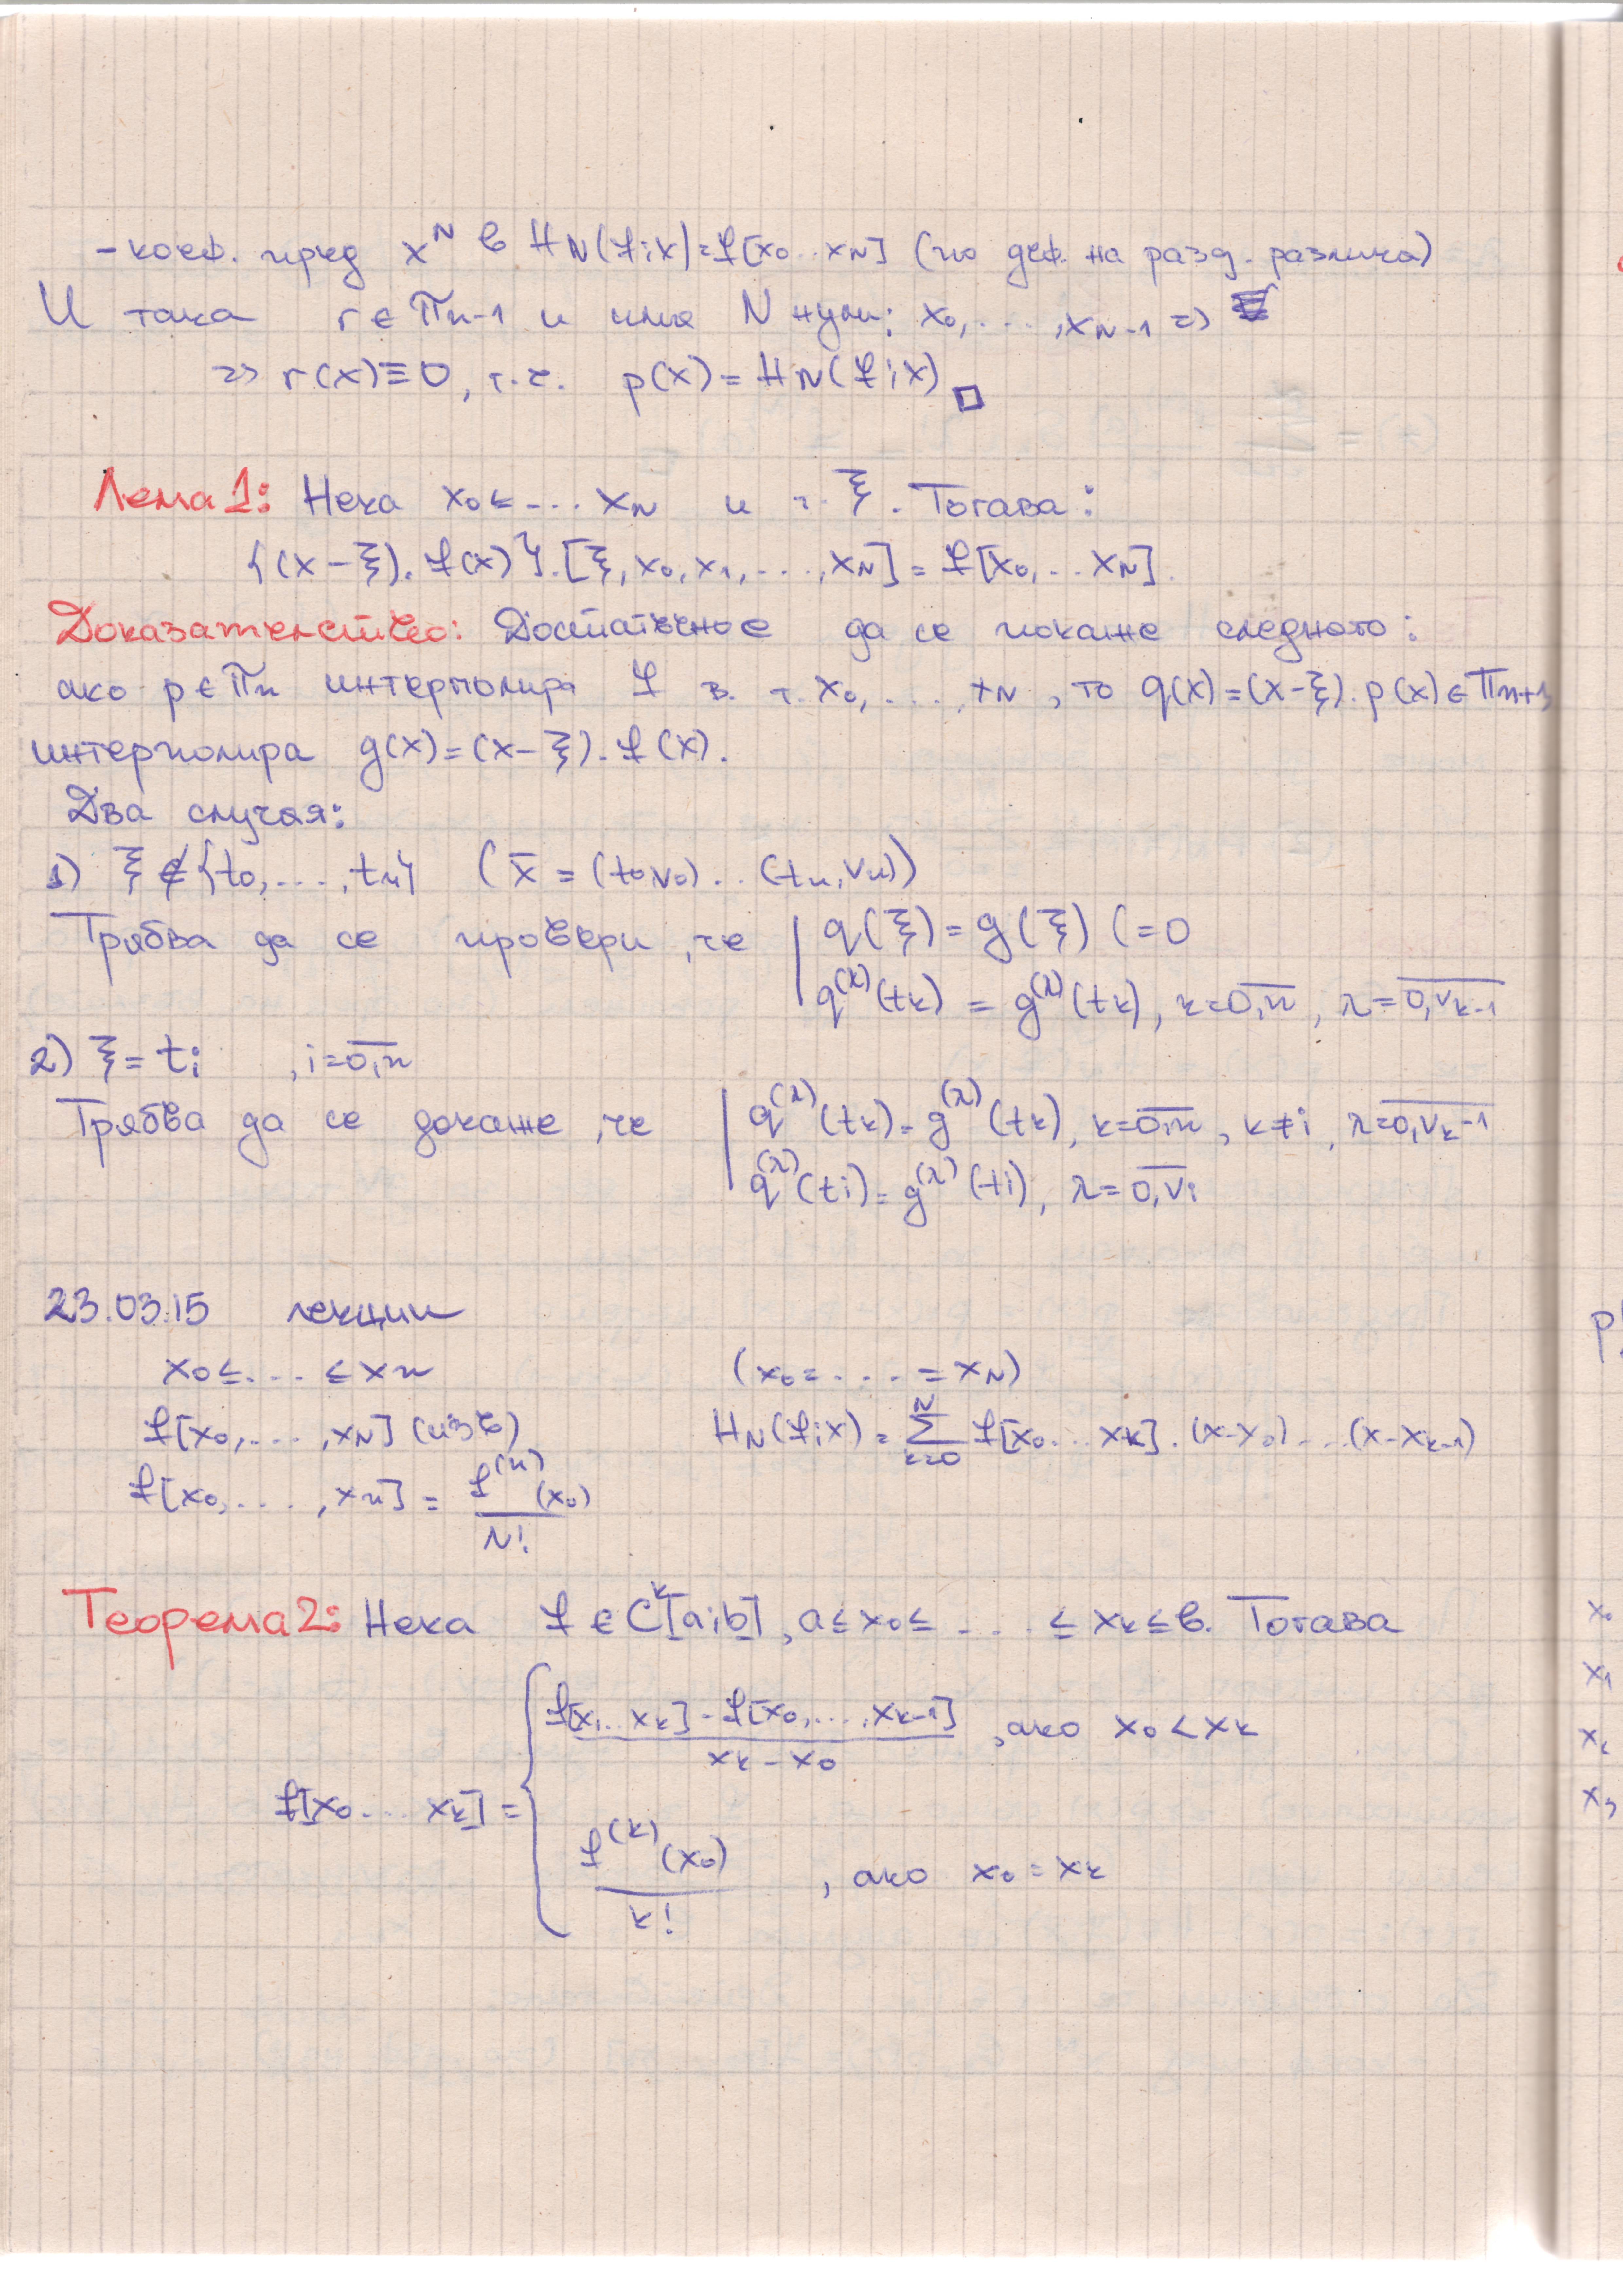 - коеф. пред x^N в H_N(f;x)=f[x_0...x_N] (по деф. на разд. разлика)
И така r ∈ π_{n-1} и има N нули: x_0,....,x_{N-1} =>
=> r(x)≡0, т.е. p(x)=H_N(f;x) □
Лема 1: Нека x_0≤... x_N и т. ξ. Тогава:
{(x-ξ).f(x)}.[ξ,x_0,x_1,....,x_N]=f[x_0,..x_N].
Доказателство: Достатъчно е да се покаже следното:
ако p ∈ π_n интерполира f в т. x_0,....,x_N, то q(x)=(x-ξ).p(x) ∈ π_{n+1}
интерполира g(x)=(x-ξ).f(x).
Два случая:
1) ξ ∉ {t_0,....,t_n} (x̄ = (t_0,ν_0)..(t_n,ν_n))
Трябва да се провери, че | q(ξ)=g(ξ) (=0
q^{(λ)}(t_k) = g^{(λ)}(t_k), k=\overline{0,n}, λ=\overline{0,ν_{k-1}}
2) ξ=t_i , i=\overline{0,n}
Трябва да се докаже, че | q^{(λ)}(t_k)=g^{(λ)}(t_k), k=\overline{0,n}, k≠i, λ=\overline{0,ν_k-1}
q^{(λ)}(t_i)=g^{(λ)}(t_i), λ=\overline{0,ν_i}
23.03.15 лекции
x_0≤... ≤x_n (x_0=....=x_N)
f[x_0,....,x_N] (изв) H_N(f;x)=\sum_{k=0}^{N} f[x_0...x_k].(x-x_0)...(x-x_{k-1})
f[x_0,....,x_n] = \frac{f^{(n)}(x_0)}{N!}
Теорема 2: Нека f ∈ C^k[a;b], a≤x_0≤ ... ≤x_k≤b. Тогава
f[x_0.... x_k] = { \frac{f[x_1..x_k]-f[x_0,....,x_{k-1}]}{x_k-x_0} , ако x_0<x_k
\frac{f^{(k)}(x_0)}{k!} , ако x_0=x_k
p
x_0
x_1
x_2
x_3